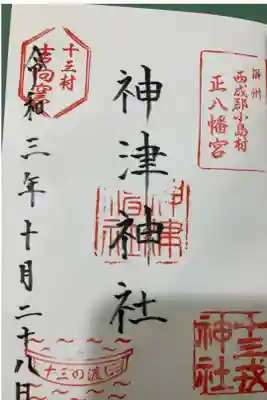 摂州
西成郡小島村
正八幡宮
神津神社
神津
神社
十三戎
神社
十三村
令和三年十月二十八日
十三の渡し